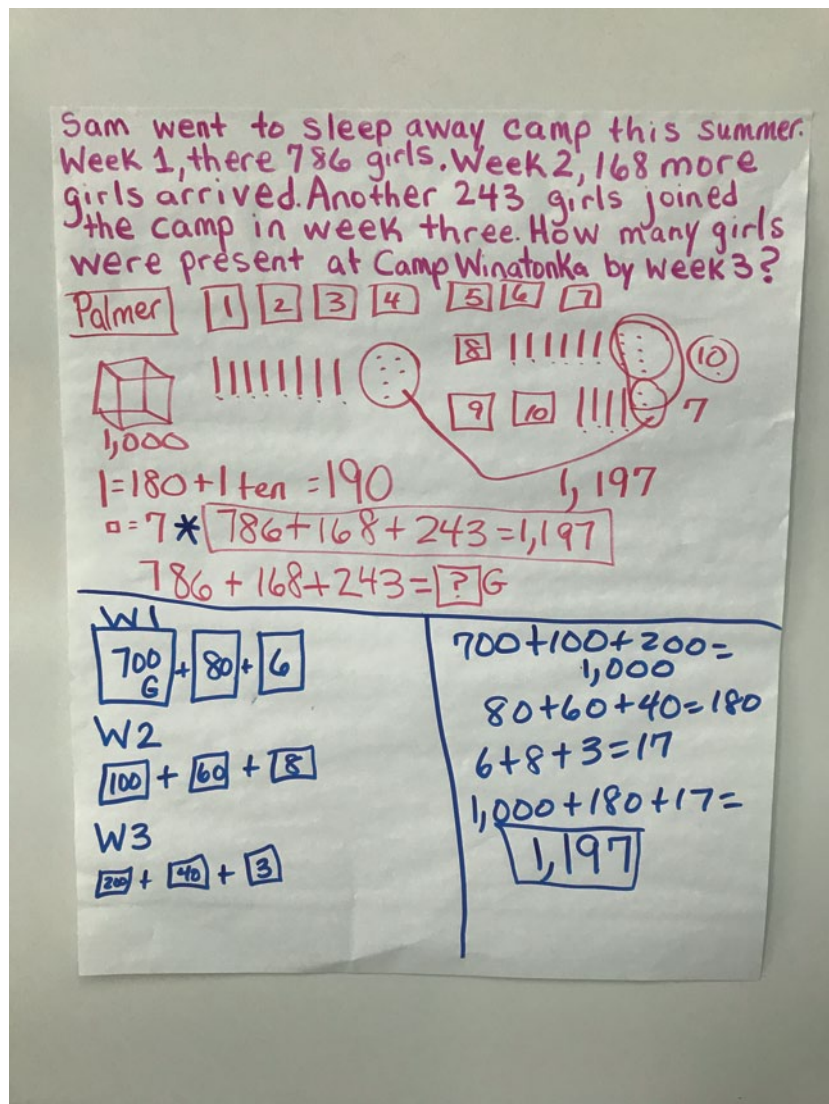 Sam went to sleep away camp this summer.
Week 1, there 786 girls. Week 2, 168 more
girls arrived. Another 243 girls joined
the camp in week three. How many girls
were present at Camp Winatonka by week 3?
Palmer 1 2 3 4 5 6 7
8 10
9 10 7
1,000
1=180+1 ten =190 1,197
▫=7 * 786+168+243=1,197
786+168+243=?G
W1
700 G + 80 + 6
W2
100 + 60 + 8
W3
200 + 40 + 3
700+100+200=
1,000
80+60+40=180
6+8+3=17
1,000+180+17=
1,197